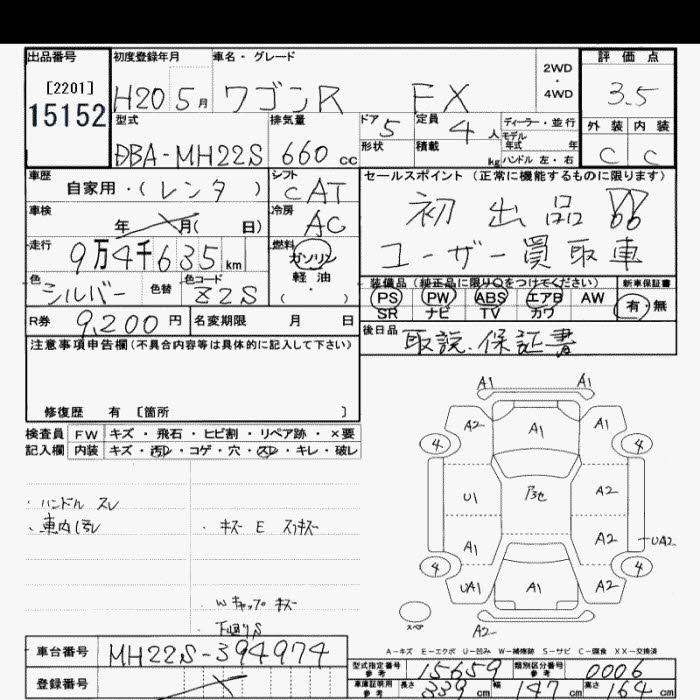 出品番号 初度登録年月 車名・グレード 2WD・4WD 評価点
[2201]
15152
H20 5月 ワゴンR FX 3.5
型式 排気量 ドア 定員 ディーラー・並行 外装 内装
DBA-MH22S 660cc 5 4人 モデル年式 C C
形状 積載 kg ハンドル 左・右
車歴 シフト セールスポイント (正常に機能するものに限ります)
自家用・(レンタ) CAT 初出品
車検 冷房
年 月( 日) AC ユーザー買取車
走行 燃料
9万4千635km ガソリン
色 色替 色コード 軽油
シルバー Z2S (・)
装備品 (純正品に限り○をつけてください) 新車保証書
PS PW ABS エアB AW 有・無
SR ナビ TV カワ
R券 9,200円 名変期限 月 日 後日品 取説.保証書
注意事項申告欄(不具合内容等は具体的に記入して下さい)
修復歴 有 [箇所 ]
検査員 FW キズ・飛石・ヒビ割・リペア跡・×要
記入欄 内装 キズ・汚レ・コゲ・穴・スレ・キレ・破レ
A1 A1
A2 A1 A1
4 4
U1 A2
・ハンドル スレ
・車内汚レ ・キズ E スリキズ
A1 A2 UA2
4 4
UA1 A1 A2
・W キャップ キズ
・下廻りS
スペア
A2
A-キズ E-エクボ U-凹み W-補修跡 S-サビ C-腐食 XX-交換済
車台番号 MH22S-394974
型式指定番号 参考 15659 類別区分番号 参考 0006
登録番号 車庫証明用 参考 長さ 339cm 幅 147cm 高さ 164cm